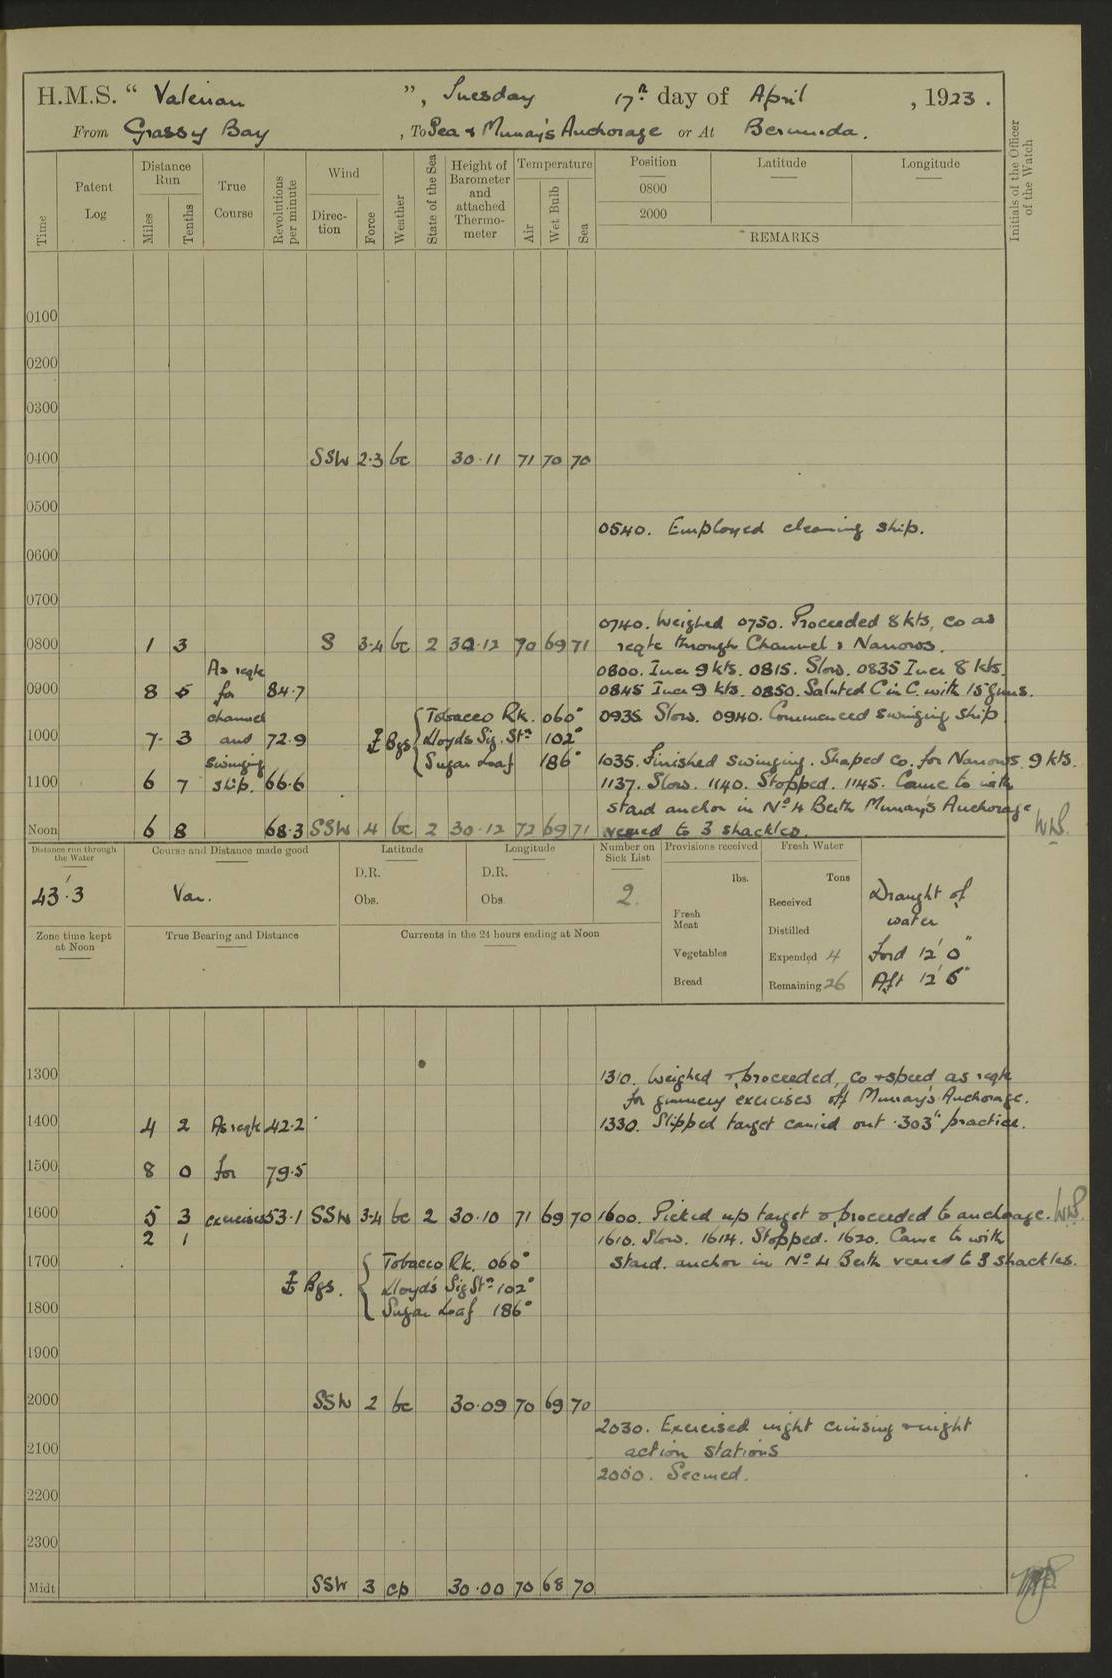 H.M.S. “ Valerian ”, Tuesday 17th day of April , 1923.
From Grassy Bay , To Sea & Murray's Anchorage or At Bermuda.
Time
Patent Log
Distance Run
Miles
Tenths
True Course
Revolutions per minute
Wind
Direction
Force
Weather
State of the Sea
Height of Barometer and attached Thermometer
Temperature
Air
Wet Bulb
Sea
Position
0800
2000
Latitude
Longitude
REMARKS
Initials of the Officer of the Watch
0100
0200
0300
0400 SSW 2·3 bc 30·11 71 70 70
0500
0540. Employed cleaning ship.
0600
0700
0740. Weighed 0750. Proceeded 8 kts, co as
0800 1 3 S 3·4 bc 2 30·12 70 69 71 reqte through Channel & Narrows.
As reqte 0800. Incr 9 kts. 0815. Slow. 0835 Incr 8 kts.
0900 8 5 for 84·7 0845 Incr 9 kts. 0850. Saluted C in C. with 15 guns.
channel Tobacco Rk. 060° 0935 Slow. 0940. Commenced swinging ship
1000 7· 3 and 72·9 Bgs Lloyds Sig. Stn 102°
swinging Sugar Loaf 186° 1035. Finished swinging. Shaped co. for Narrows 9 kts.
1100 6 7 ship. 66·6 1137. Slow. 1140. Stopped. 1145. Came to with
stard anchor in No 4 Berth Murray's Anchorage
Noon 6 8 68·3 SSW 4 bc 2 30·12 72 69 71 veered to 3 shackles.
Distance run through the Water
43·3
Course and Distance made good
Var.
Latitude
D.R.
Obs.
Longitude
D.R.
Obs
Number on Sick List
2
Provisions received
lbs.
Fresh Meat
Vegetables
Bread
Fresh Water
Tons
Received
Distilled
Expended 4
Remaining 26
Draught of
water
Ford 12' 0"
Aft 12' 6"
Zone time kept at Noon
True Bearing and Distance
Currents in the 24 hours ending at Noon
1300 1310. Weighed & proceeded, co & speed as reqte
for gunnery exercises off Murray's Anchorage.
1400 4 2 As reqte 42·2 1330. Slipped target carried out ·303" practice.
1500 8 0 for 79·5
1600 5 3 exercises 53·1 SSW 3·4 bc 2 30·10 71 69 70 1600. Picked up target & proceeded to anchorage.
2 1 1610. Slow. 1614. Stopped. 1620. Came to with
1700 Tobacco Rk. 060° stard. anchor in No 4 Berth veered to 3 shackles.
Bgs. Lloyd's Sig Stn 102°
1800 Sugar Loaf 186°
1900
2000 SSW 2 bc 30·09 70 69 70
2030. Exercised night cruising & night
2100 action stations
2000. Secured.
2200
2300
Midt SSW 3 cp 30·00 70 68 70